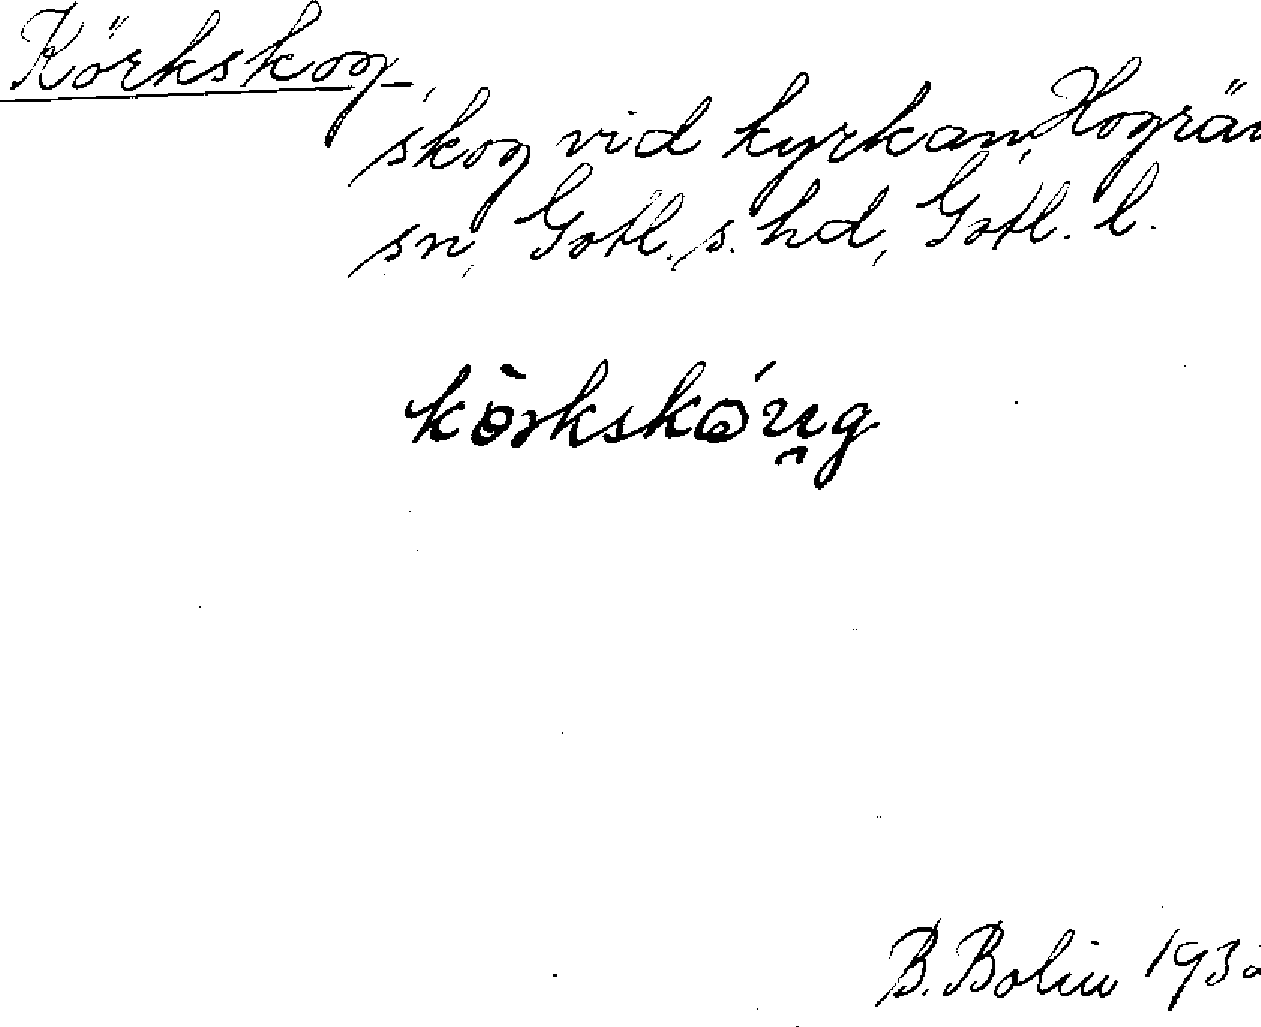 Körkskog,
skog vid kyrkan, Hogrän
sn, Gotl. s. hd, Gotl. l.
kö̀rkskóu̯g
B. Bolin 193